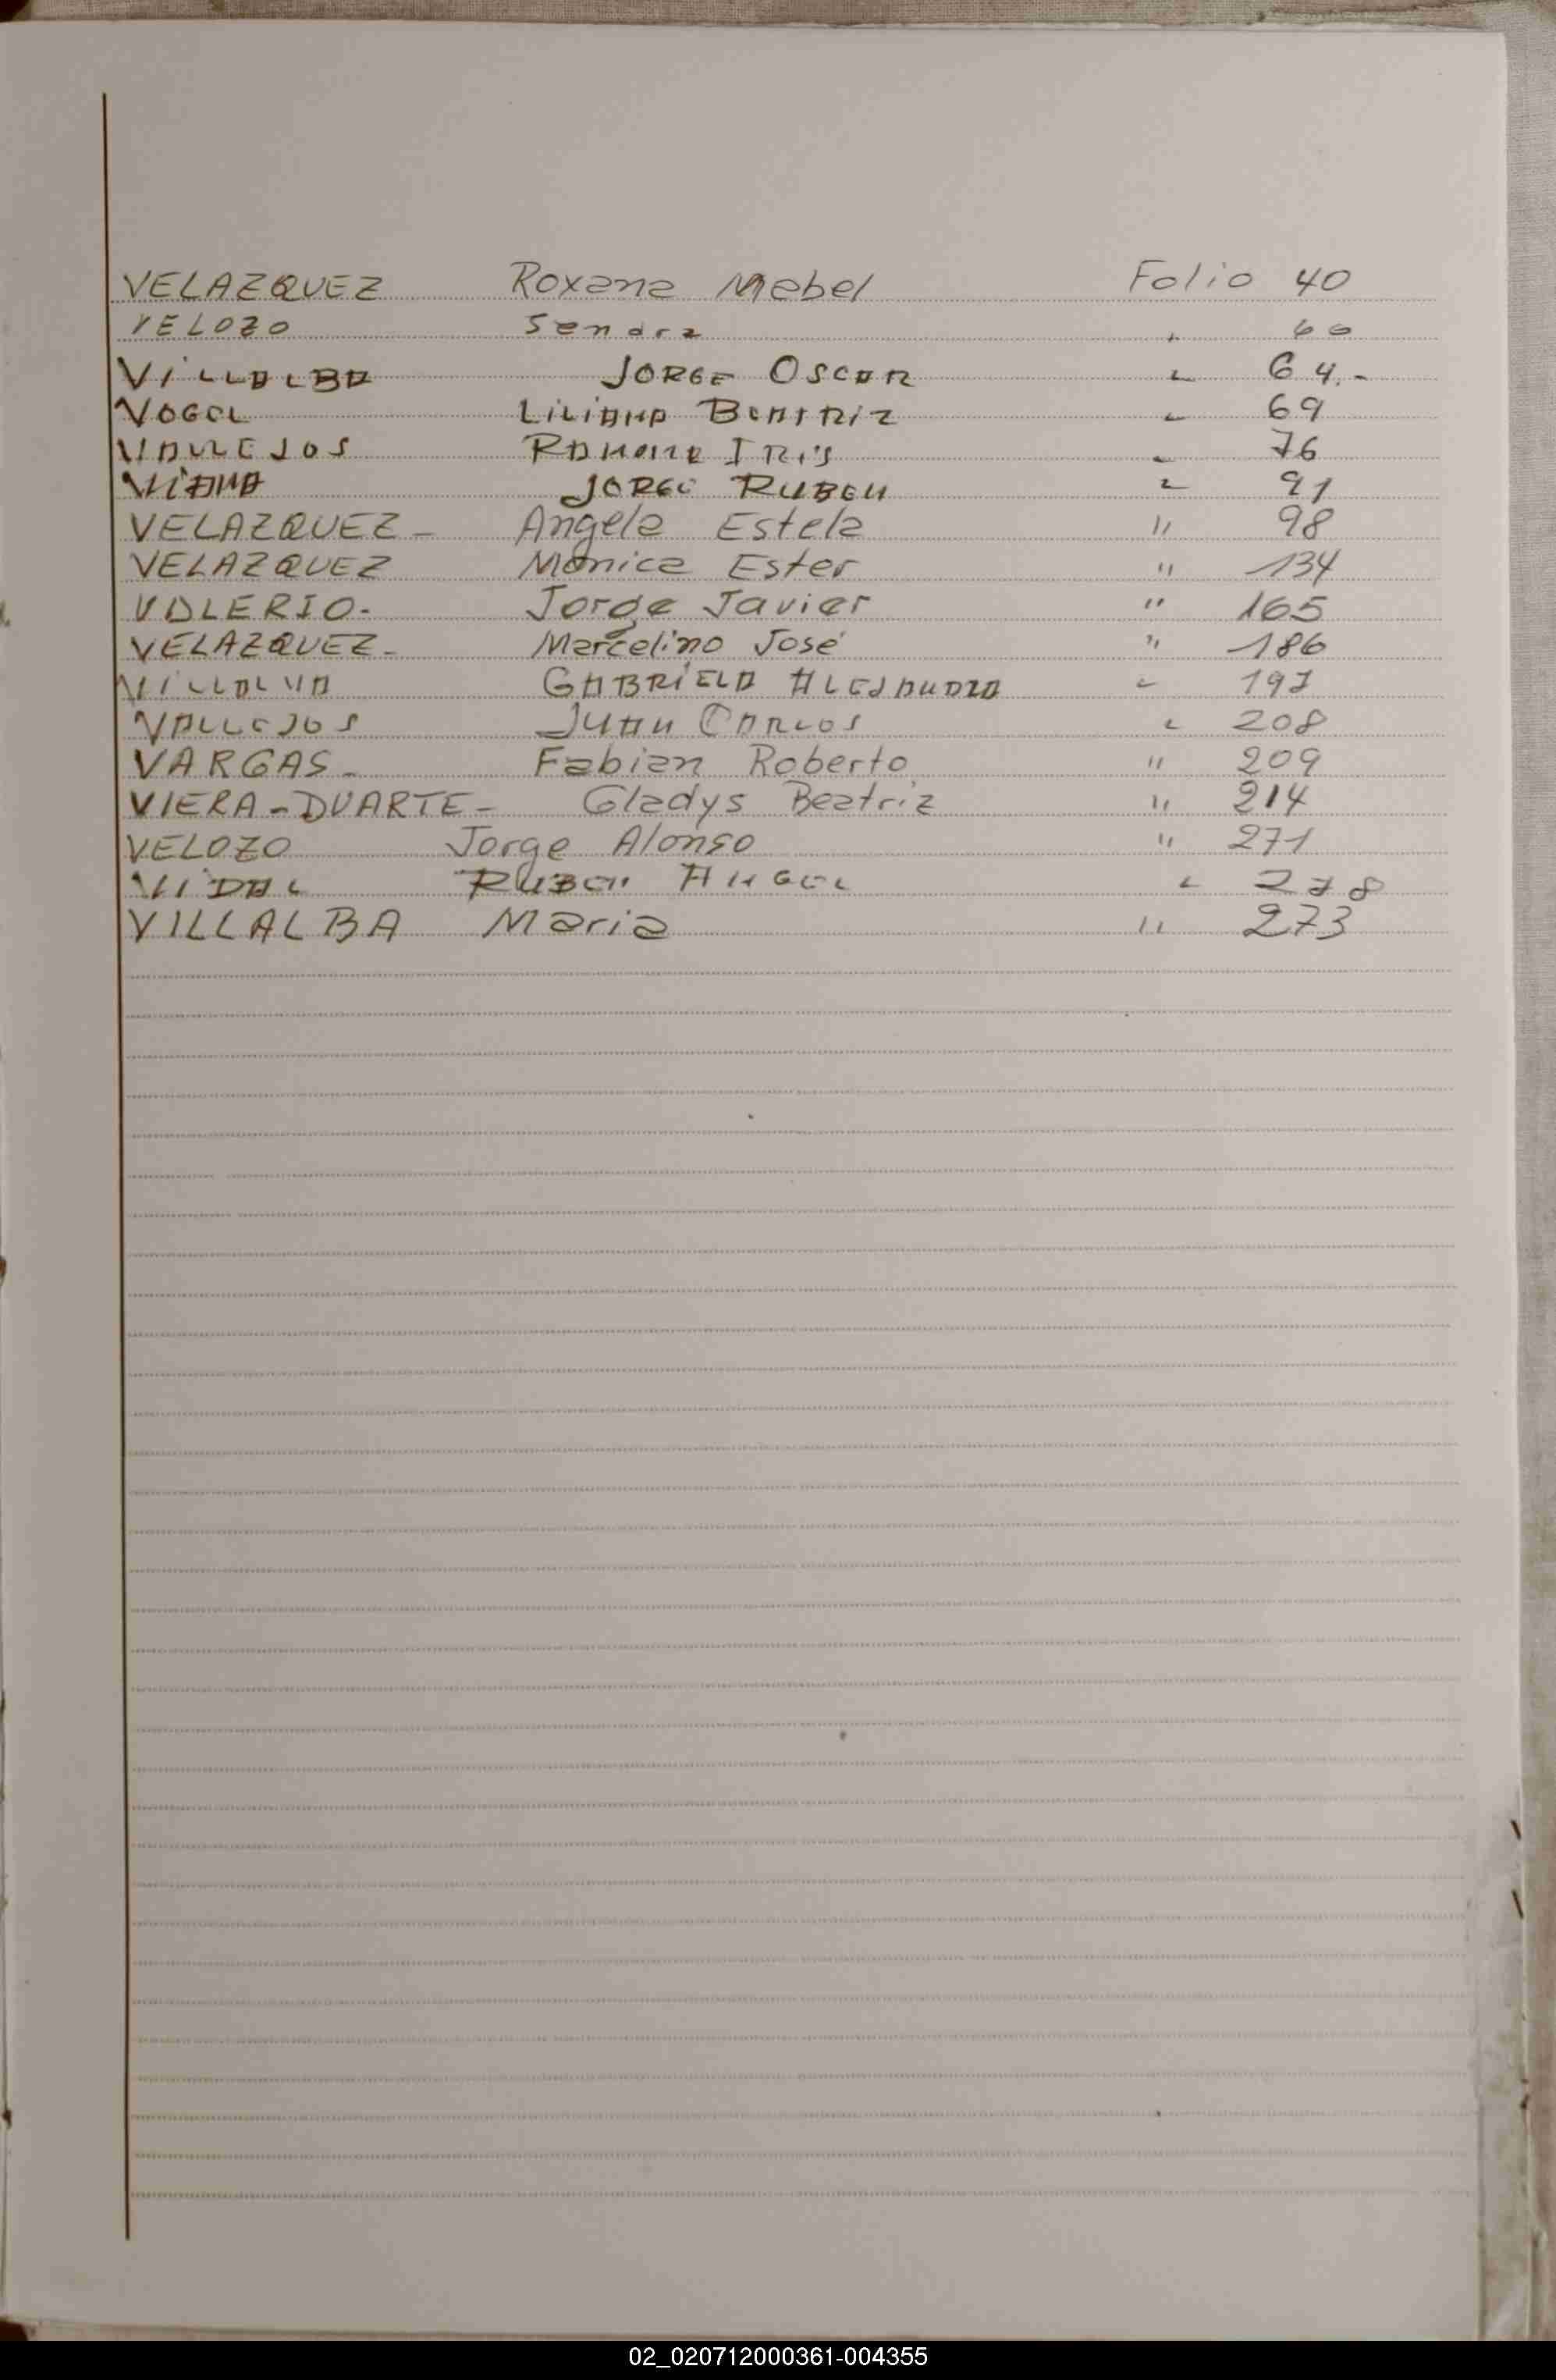 VELAZQUEZ Roxana Mabel Folio 40
VELOZO Sandra " 60
VILLALBA JORGE OSCAR " 64.-
VOGEL LILIANA BEATRIZ " 69
VALLEJOS RAMONA IRIS " 76
VIANA JORGE RUBEN " 91
VELAZQUEZ - Angela Estela " 98
VELAZQUEZ Mónica Ester " 134
VALERIO - Jorge Javier " 165
VELAZQUEZ - Marcelino José " 186
VILLALVA GABRIELA ALEJANDRA " 197
VALLEJOS JUAN CARLOS " 208
VARGAS - Fabian Roberto " 209
VIERA - DUARTE - Gladys Beatriz " 214
VELOZO Jorge Alonso " 271
VIDAL RUBEN ANGEL " 278
VILLALBA Maria " 273
02_020712000361-004355